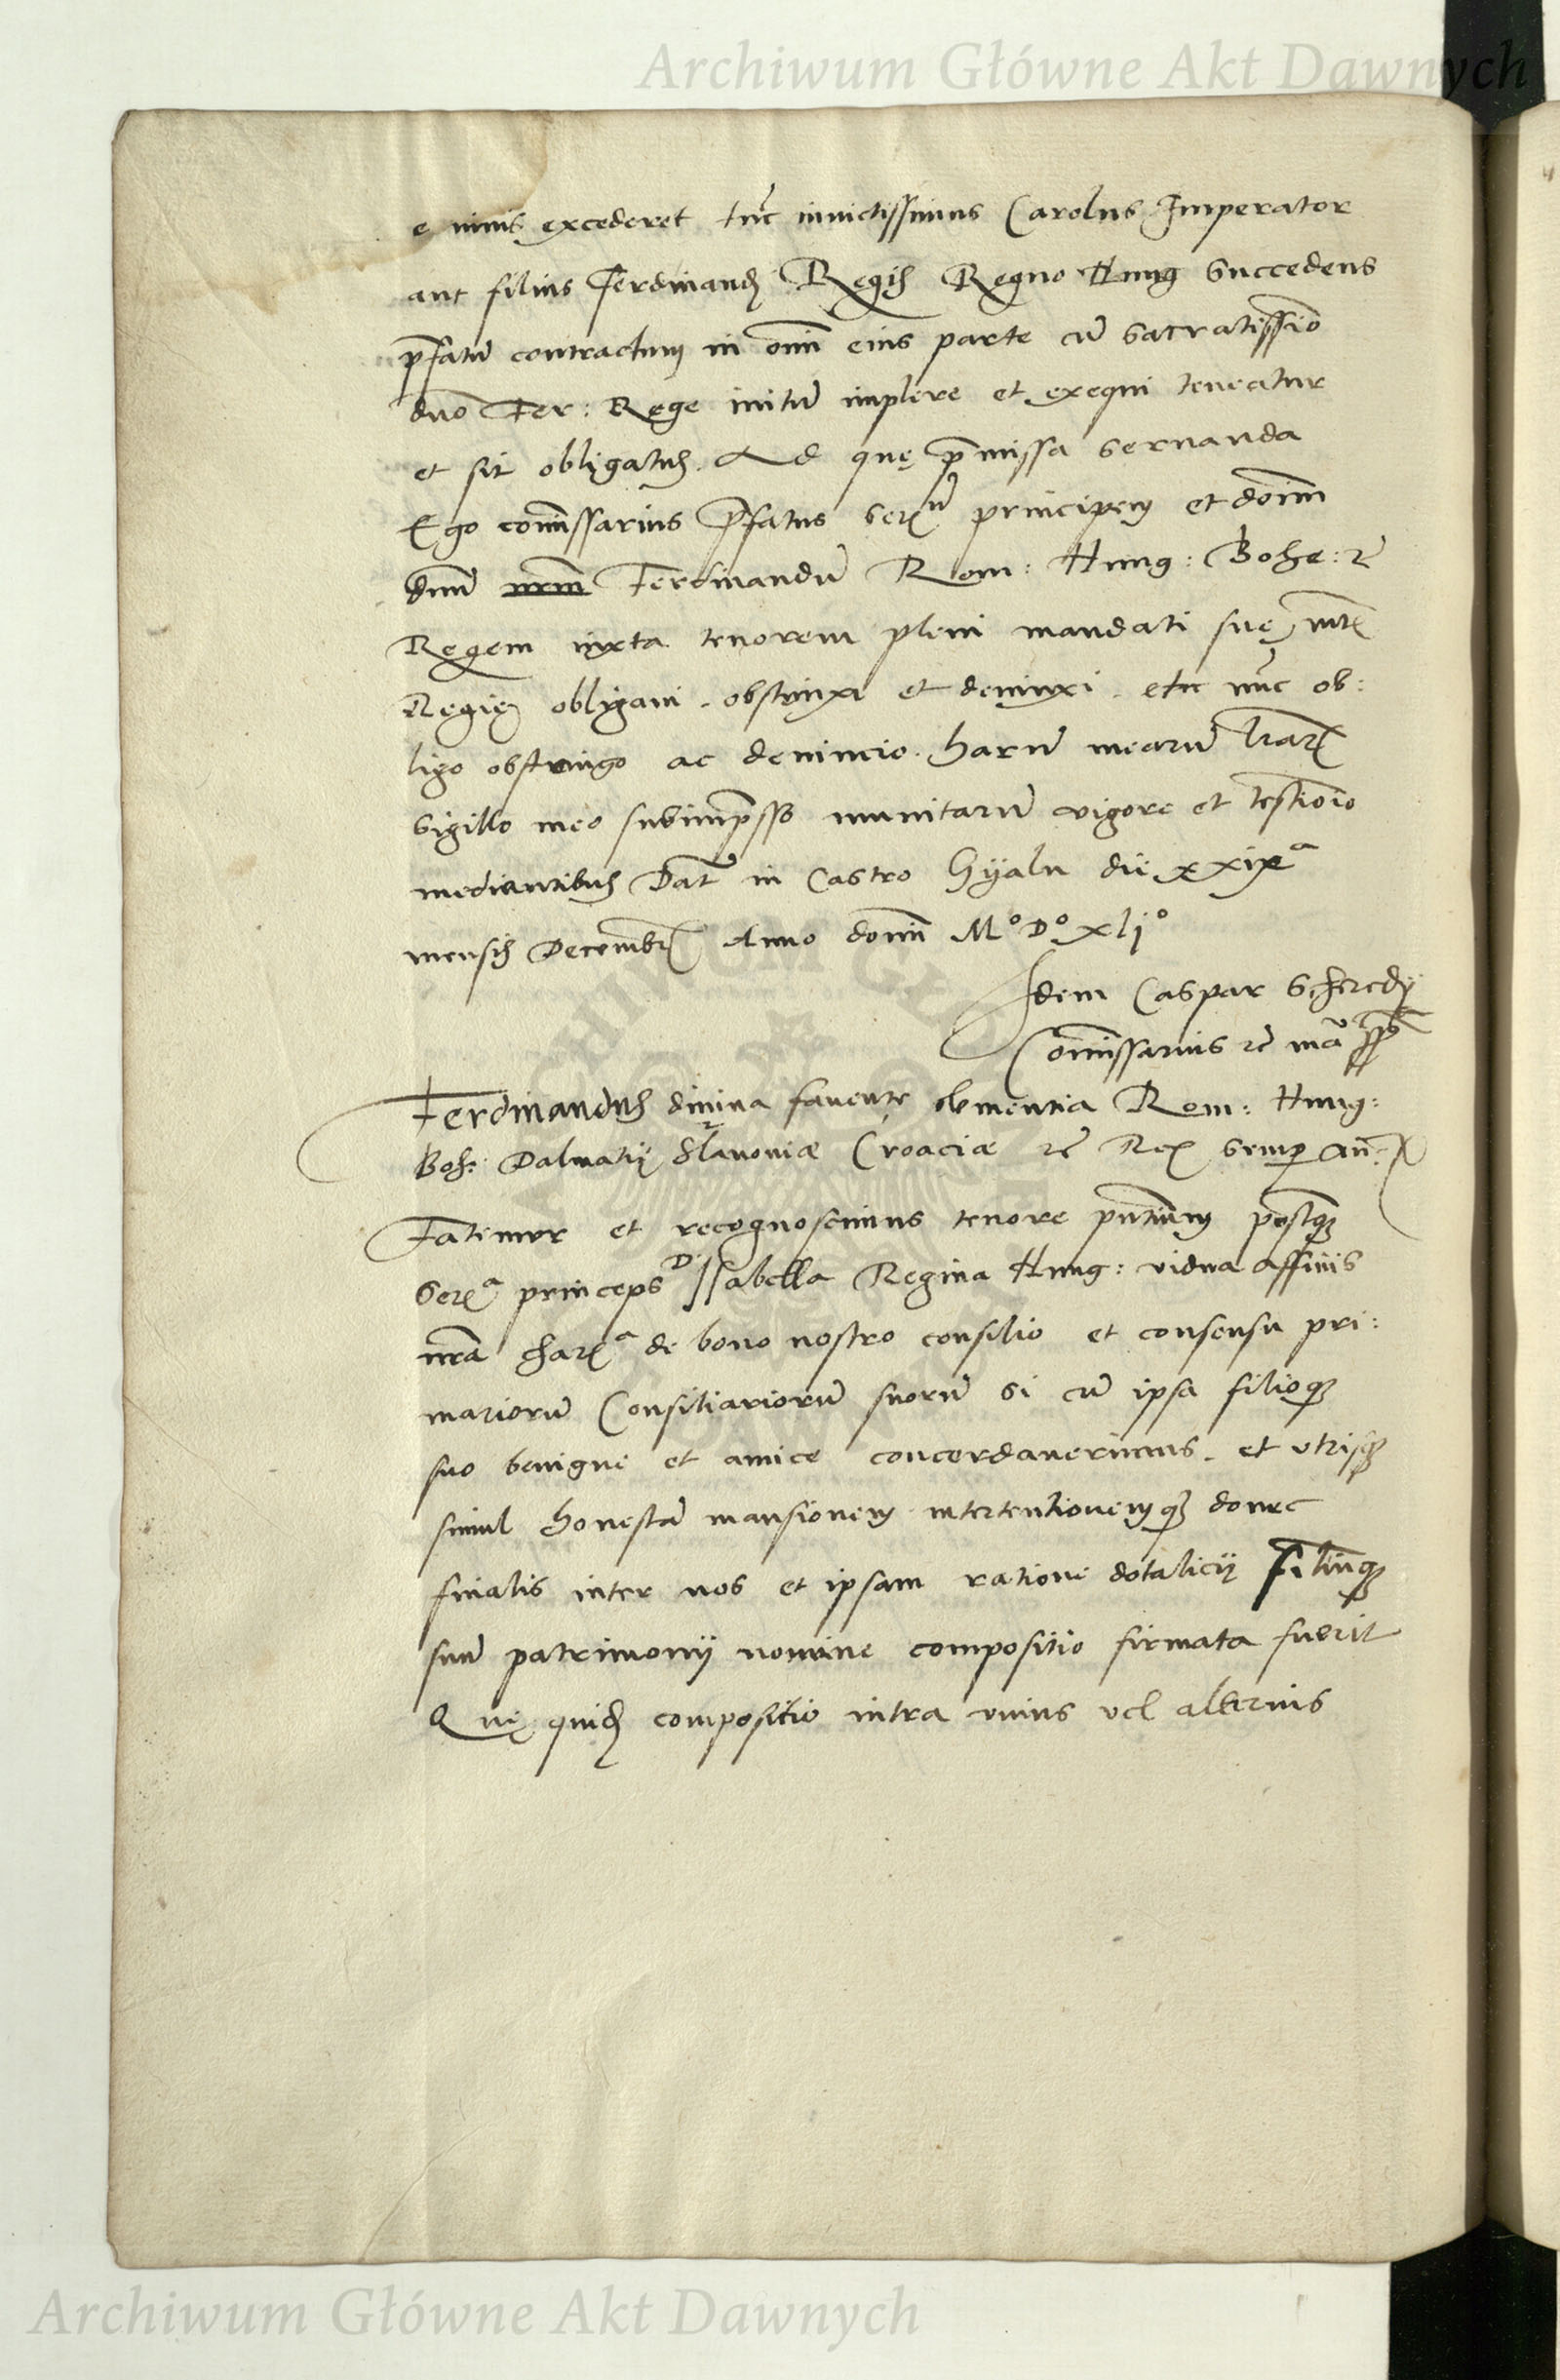 Archiwum Główne Akt Dawnych
e vivis excederet tūc invictissimus Carolus Imperator
aut filius Ferdinandj Regis Regno Hung Succedens
p̄fatū contractum in om̄i eius parte cū Sacratissīo
dn̄o Fer: Rege initū implere et exequi teneatur
et sit obligatus. Ad quę p̄missa servanda
Ego com̄issarius p̄fatus Serū principem et dom̄
dnū nrm̄ Ferdinandū Rom: Hung: Bohe: rc̄
Regem iuxta tenorem pleni mandati suę mtis
Regię obligavi. obstrinxi et devinxi. etc nūc ob:
ligo obstringo ac devincio. harū mearū lrārū
Sigillo meo subimp̄sso munitarū vigore et testīoīo
mediantibus Dat̄ in Castro Gyalu die xxixa
mensis Decembris Anno domī Mo Do xljo
Idem Caspar Scheredy
Com̄issarius rc̄ mā pp̄
Ferdinandus divina favente clementia Rom: Hung:
Boh: Dalmatiȩ Slavoniæ Croaciæ rc̄ Rex Semp Au:
Fatemur et recognoscimus tenore pn̄tium postq̄
Sera princeps D Issabella Regina Hung: vidua affinis
nrā chara de bono nostro consilio et consensu pri:
mariorū Consiliariorū suorū Si cū ipsa filioq
suo benigne et amice concordaverimus. et utrisq
simul honestā mansionem intertentionemq donec
finalis inter nos et ipsam ratione dotalicij filiūq
suū patrimonij nomine compositio firmata fuerit
Quę quidē compositio intra unius vel alterius
Archiwum Główne Akt Dawnych